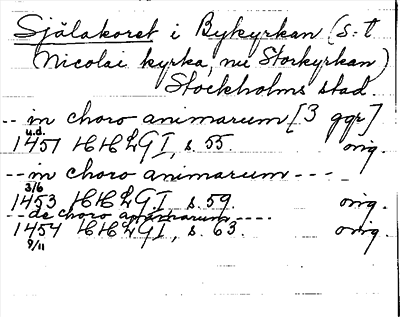 Själakoret i Bykyrkan (S:t
Nicolai kyrka, nu Storkyrkan)
Stockholms stad.
-- in choro animarum [3 ggr]
u.d.
1451 HHLGI, s. 55. orig.
-- in choro animarum ----
3/6
1453 HHLGI, s. 59. orig.
-- de choro animarum ----
1454 HHLGI, s. 63. orig.
9/11